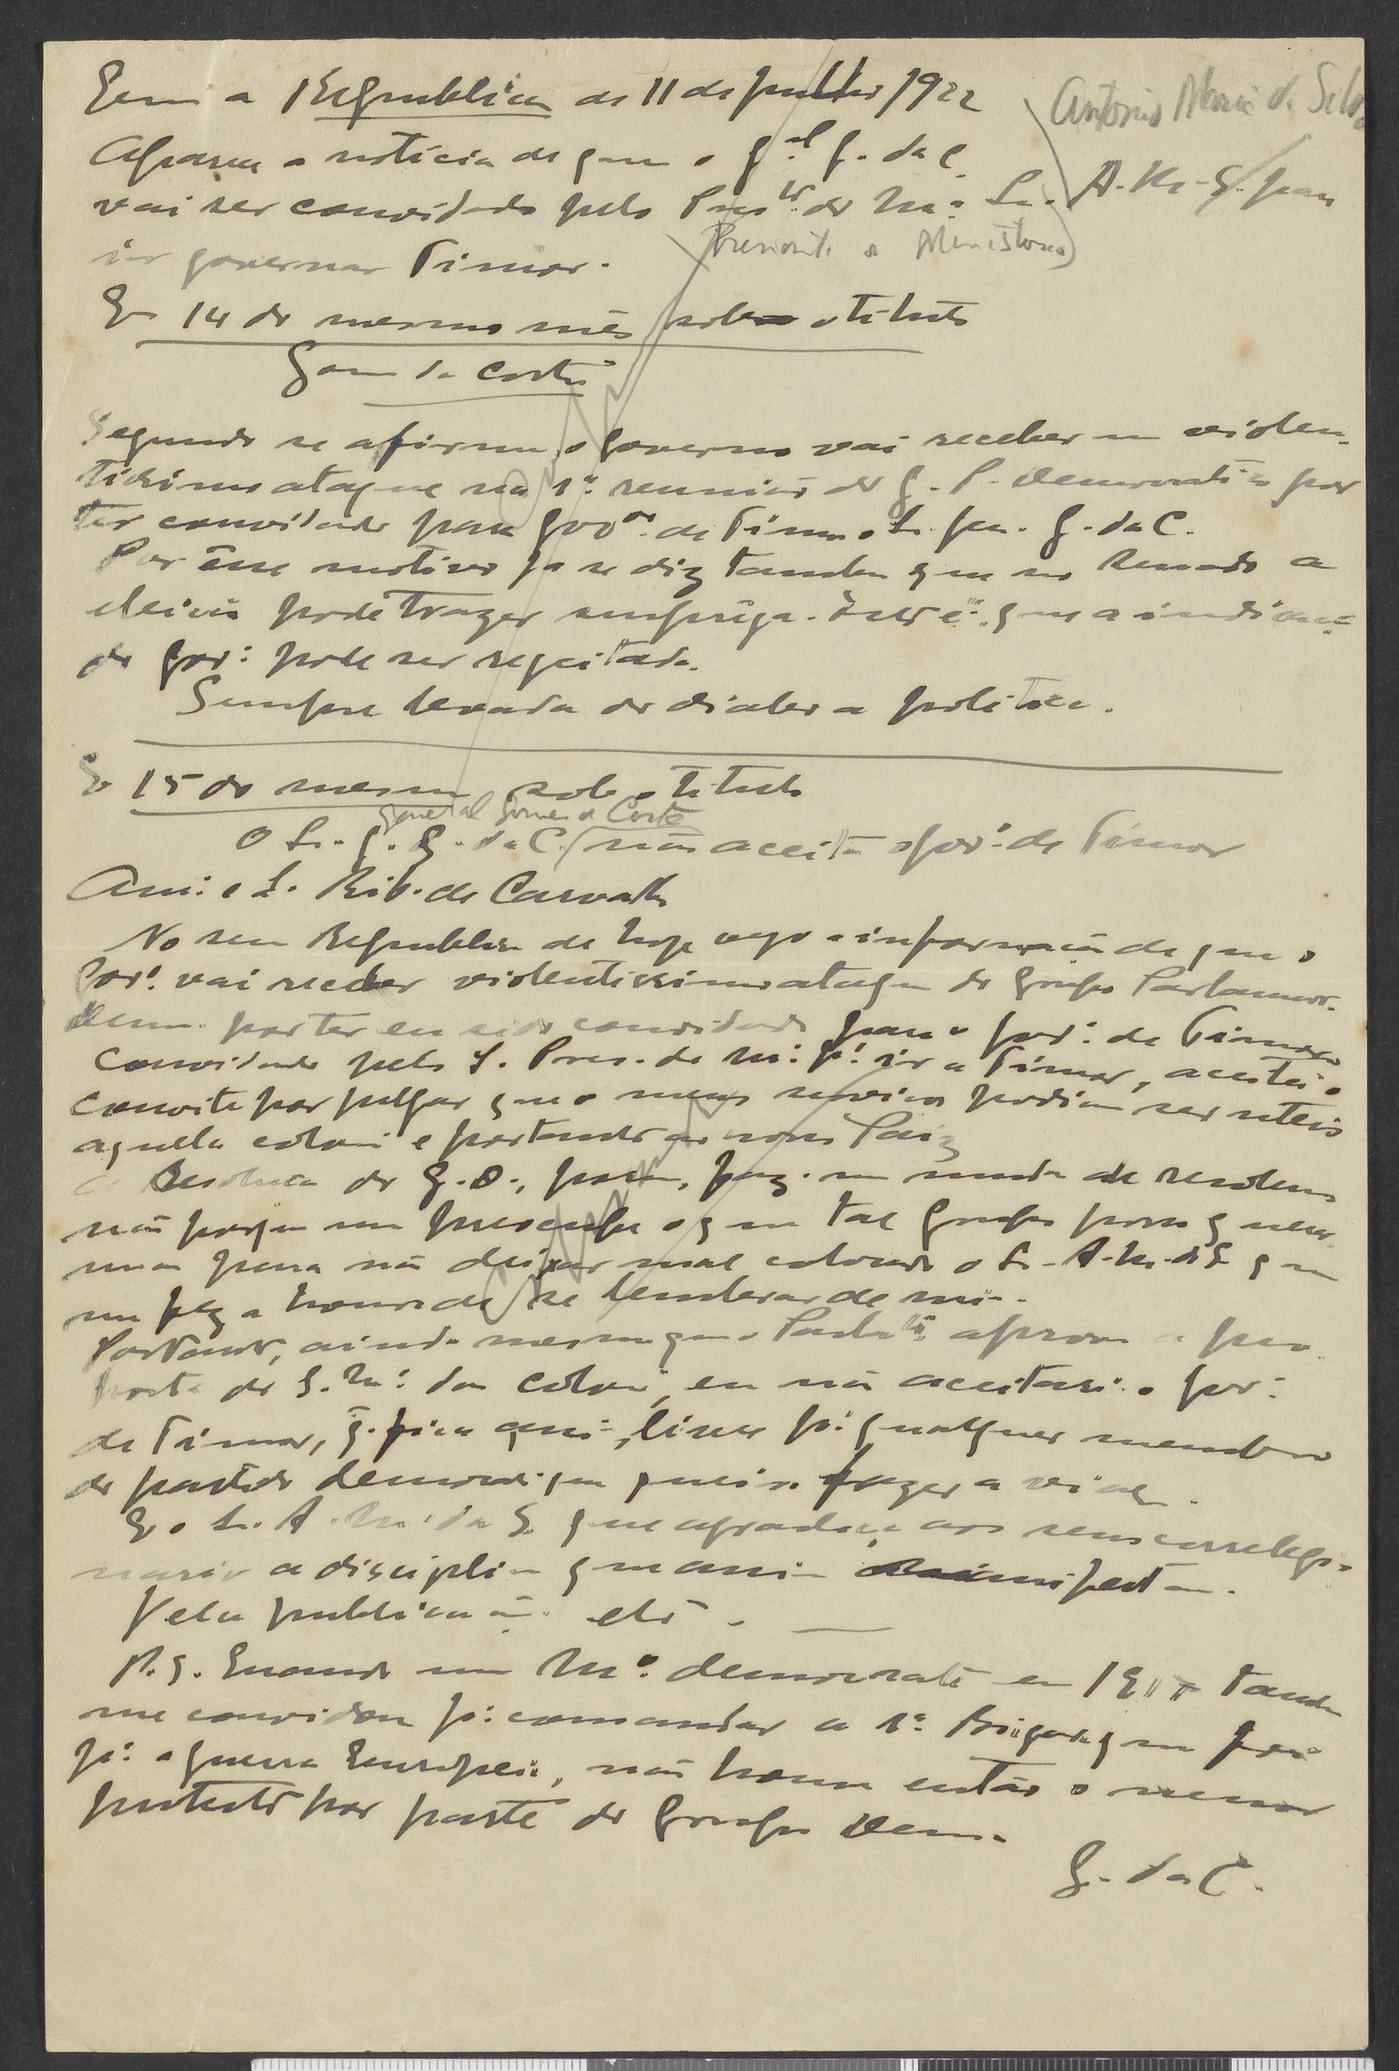 Em a República de 11 de Julho 1922
Aparece a noticia de que o g.al G. da C.
vai ser convidado pelo Pres.te de M.o Sr. A. M. S. para
António Maria da Silva
(Presidente de Ministério)
ir governar Timor.
Em 14 do mesmo mês sob o titulo
Gom. da Costa
Segundo se afirma o Governo vai receber um violen-
tissimo ataque na 1ª reunião do G. P. Democratico por
ter convidado para gov.or de Timor o Sr. G. da C.
Por êsse motivo já se diz tambem que no Senado a
eleição pode trazer surprêza. Isto é: que a indicação
do gov: pode ser regeitada.
Sempre levada do diabo a politica.
Em 15 do mesmo sob o titulo
general Gomes da Costa
O Sr. g. G. da C. não aceita o gov.o de Timor
Am: e S. Rib. de Carvalho
No seu Republica de hoje vejo a informação de que o
Gov: vai receber violentissimo ataque do Grupo Parlamen.
Dem. por ter eu sido convidado para o gov: de Timor
Convidado pelo S. Pres. de M: p: ir a Timor, aceitei o
convite por julgar que os meus serviços podiam ser uteis
aquela colonia e portanto ao nosso Paiz
A Resolução do G. D., porem, faz-me mudar de resolução
não porque me preocupe o que tal Grupo possa querer
mas para não deixar mal colocado o Sr. A. M. da S. que
me fez a honra de se lembrar de mim.
Portanto, ainda mesmo que o Parla.to aprove a pro
posta do S. M: das Colonias, eu não aceitarei o gov:
de Timor, q. fica assim livre p: qualquer membro
do partido democratico que queira fazer a viagem.
E o Sr. A. M. da S. que agradeça aos seus correlegio-
narios a disciplina que assim manifestam.
Pela publicação etc.
P.S. Quando um M.o democrata em 1917 tambem
me convidou p: comandar a 1ª Brigada que foi
p: a guerra Europeia, não houve então o menor
protesto por parte do Grupo Dem.
G. da C.